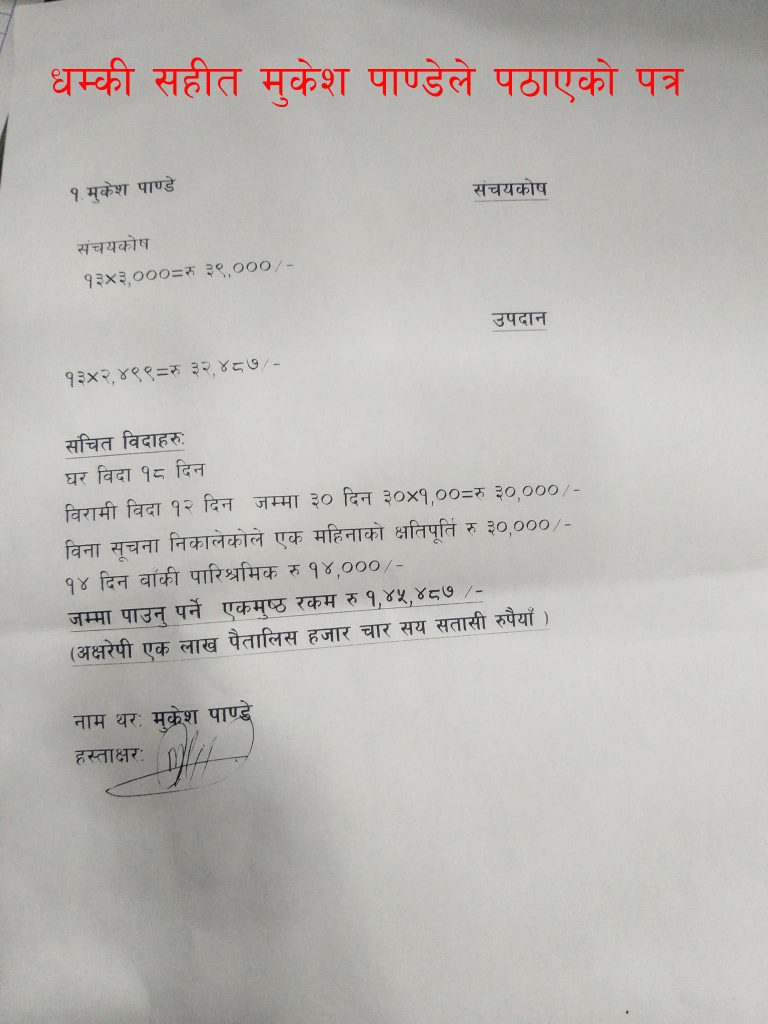 धम्की सहीत मुकेश पाण्डेले पठाएको पत्र
१.मुकेश पाण्डे
संचयकोष
संचयकोष
१३×३,०००=रु ३९,०००/-
उपदान
१३×२,४९९=रु ३२,४८७/-
सचित विदाहरु:
घर विदा १८ दिन
विरामी विदा १२ दिन जम्मा ३० दिन ३०×१,००=रु ३०,०००/-
विना सूचना निकालेकोले एक महिनाको क्षतिपूर्ति रु ३०,०००/-
१४ दिन वाँकी पारिश्रमिक रु १४,०००/-
जम्मा पाउनु पर्ने एकमुष्ठ रकम रु १,४५,४८७ /-
(अक्षरेपी एक लाख पैतालिस हजार चार सय सतासी रुपैयाँ )
नाम थर: मुकेश पाण्डे
हस्ताक्षर: